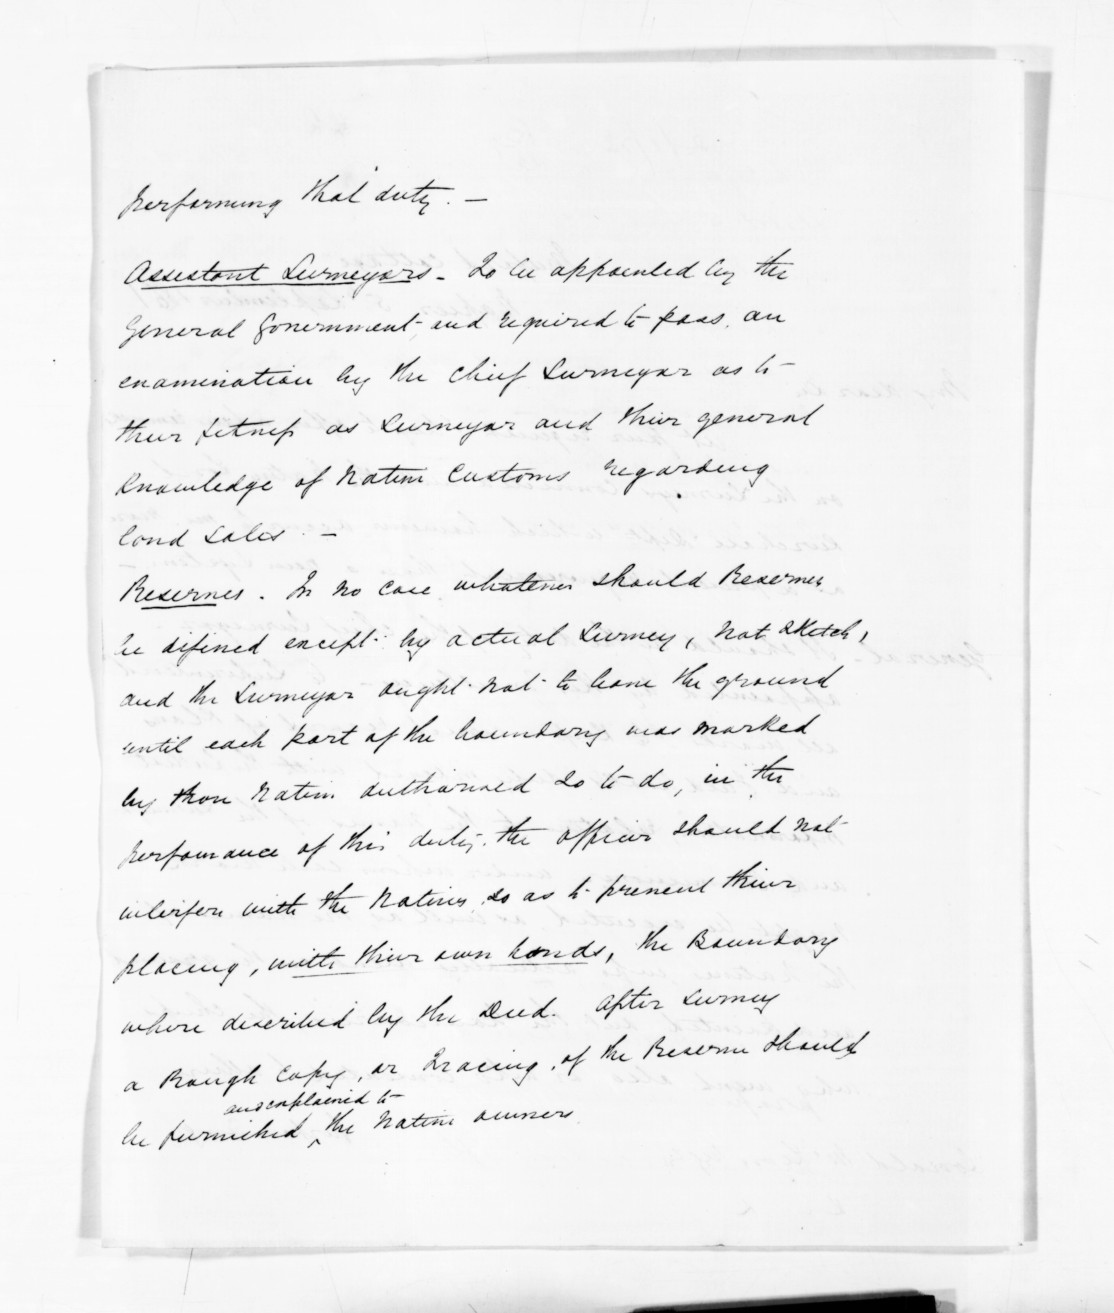 performing that duty. —
Assistant Surveyors - To be appointed by the
General Government, and required to pass, an
examination by the Chief Surveyor as to
their fitness as Surveyor and their general
Knowledge of Native Customs regarding
land Sales. —
Reserves. In no case whatever should Reserves
be difined except by actual Survey, not sketch,
and the Surveyor ought not to leave the ground
until each part of the boundary was marked
by those Natives authorised so to do, in the
perfomance of this duty, the officer should not
interfere with the Natives so as to prevent their
placing, with their own hands, the Boundary
where described by the Deed. After Survey
a Rough Copy, or Tracing, of the Reserve should
and explained to
be furnished ^ the Native owners.